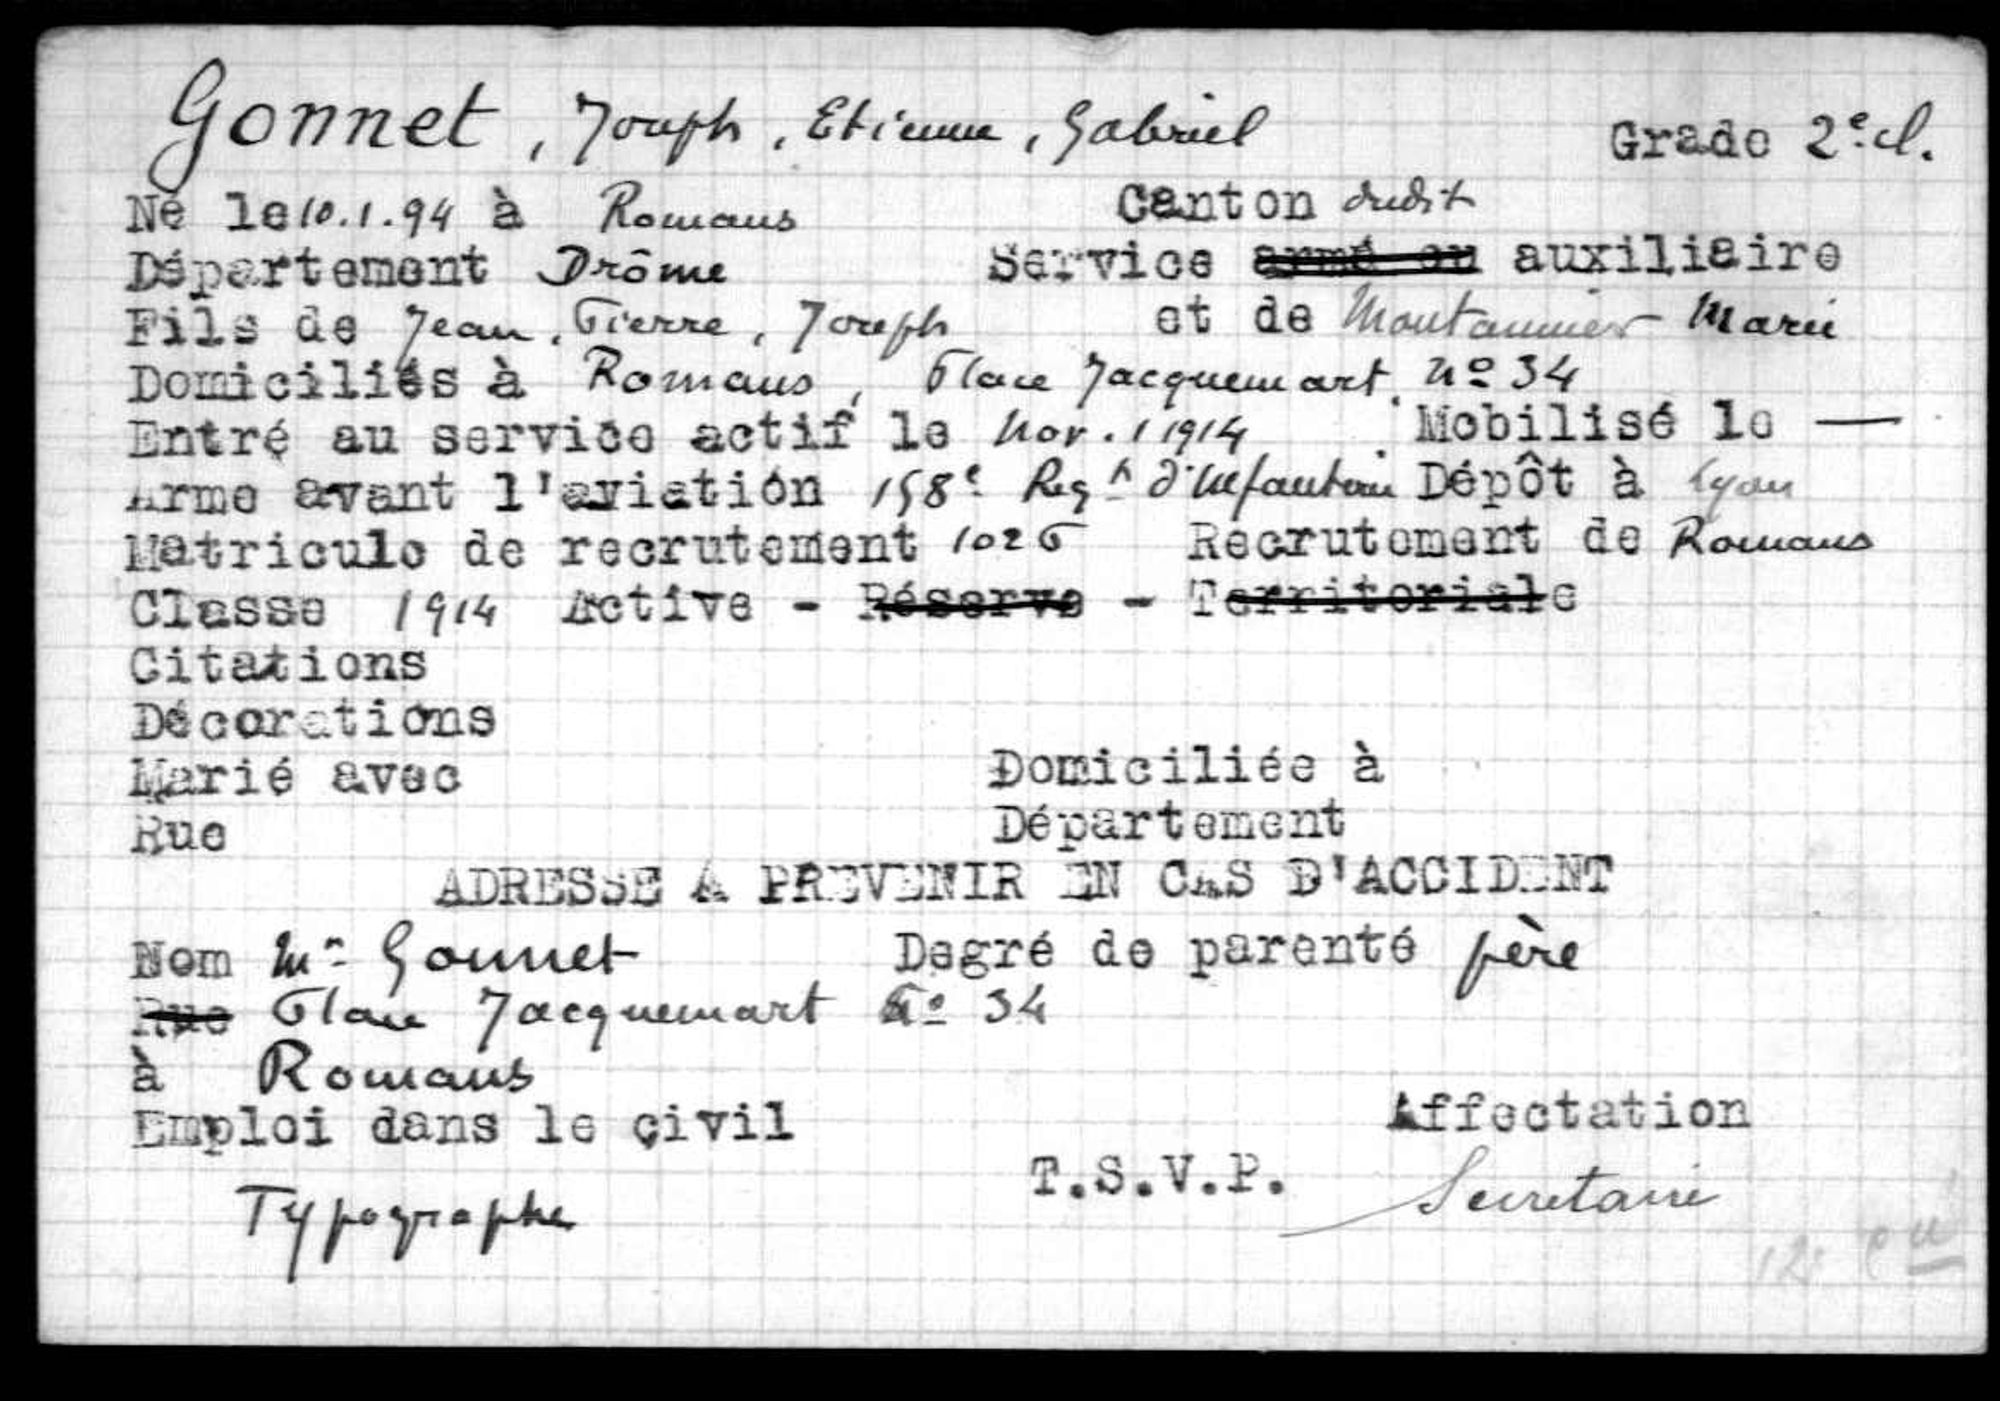 Gonnet, Joseph, Etienne, Gabriel Grade 2e cl.
Né le 10.1.94 à Romans Canton dudit
Département Drôme Service armé ou auxiliaire
Fils de Jean, Pierre, Joseph et de Montanier Marie
Domiciliés à Romans, Place Jacquemart, No 34
Entré au service actif le Nov. 1914 Mobilisé le —
Arme avant l'aviation 158e Regt d'Infanterie Dépôt à Lyon
Matricule de recrutement 1026 Recrutement de Romans
Classe 1914 Active - Réserve - Territoriale
Citations
Décorations
Marié avec Domiciliée à
Rue Département
ADRESSE A PREVENIR EN CAS D'ACCIDENT
Nom Mr Gonnet Degré de parenté père
Rue Place Jacquemart No 34
à Romans
Emploi dans le civil Affectation
Typographe T.S.V.P. Secretaire